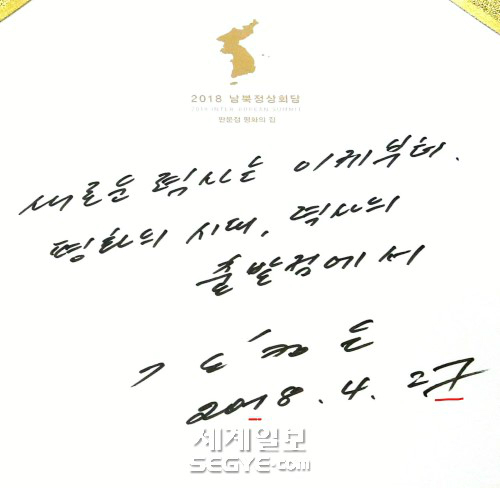 2018 남북정상회담
2018 INTER-KOREAN SUMMIT
판문점 평화의 집
새로운 력사는 이제부터.
평화의 시대, 력사의
출발점에서
김정은
2018. 4. 27
세계일보
SEGYE.com